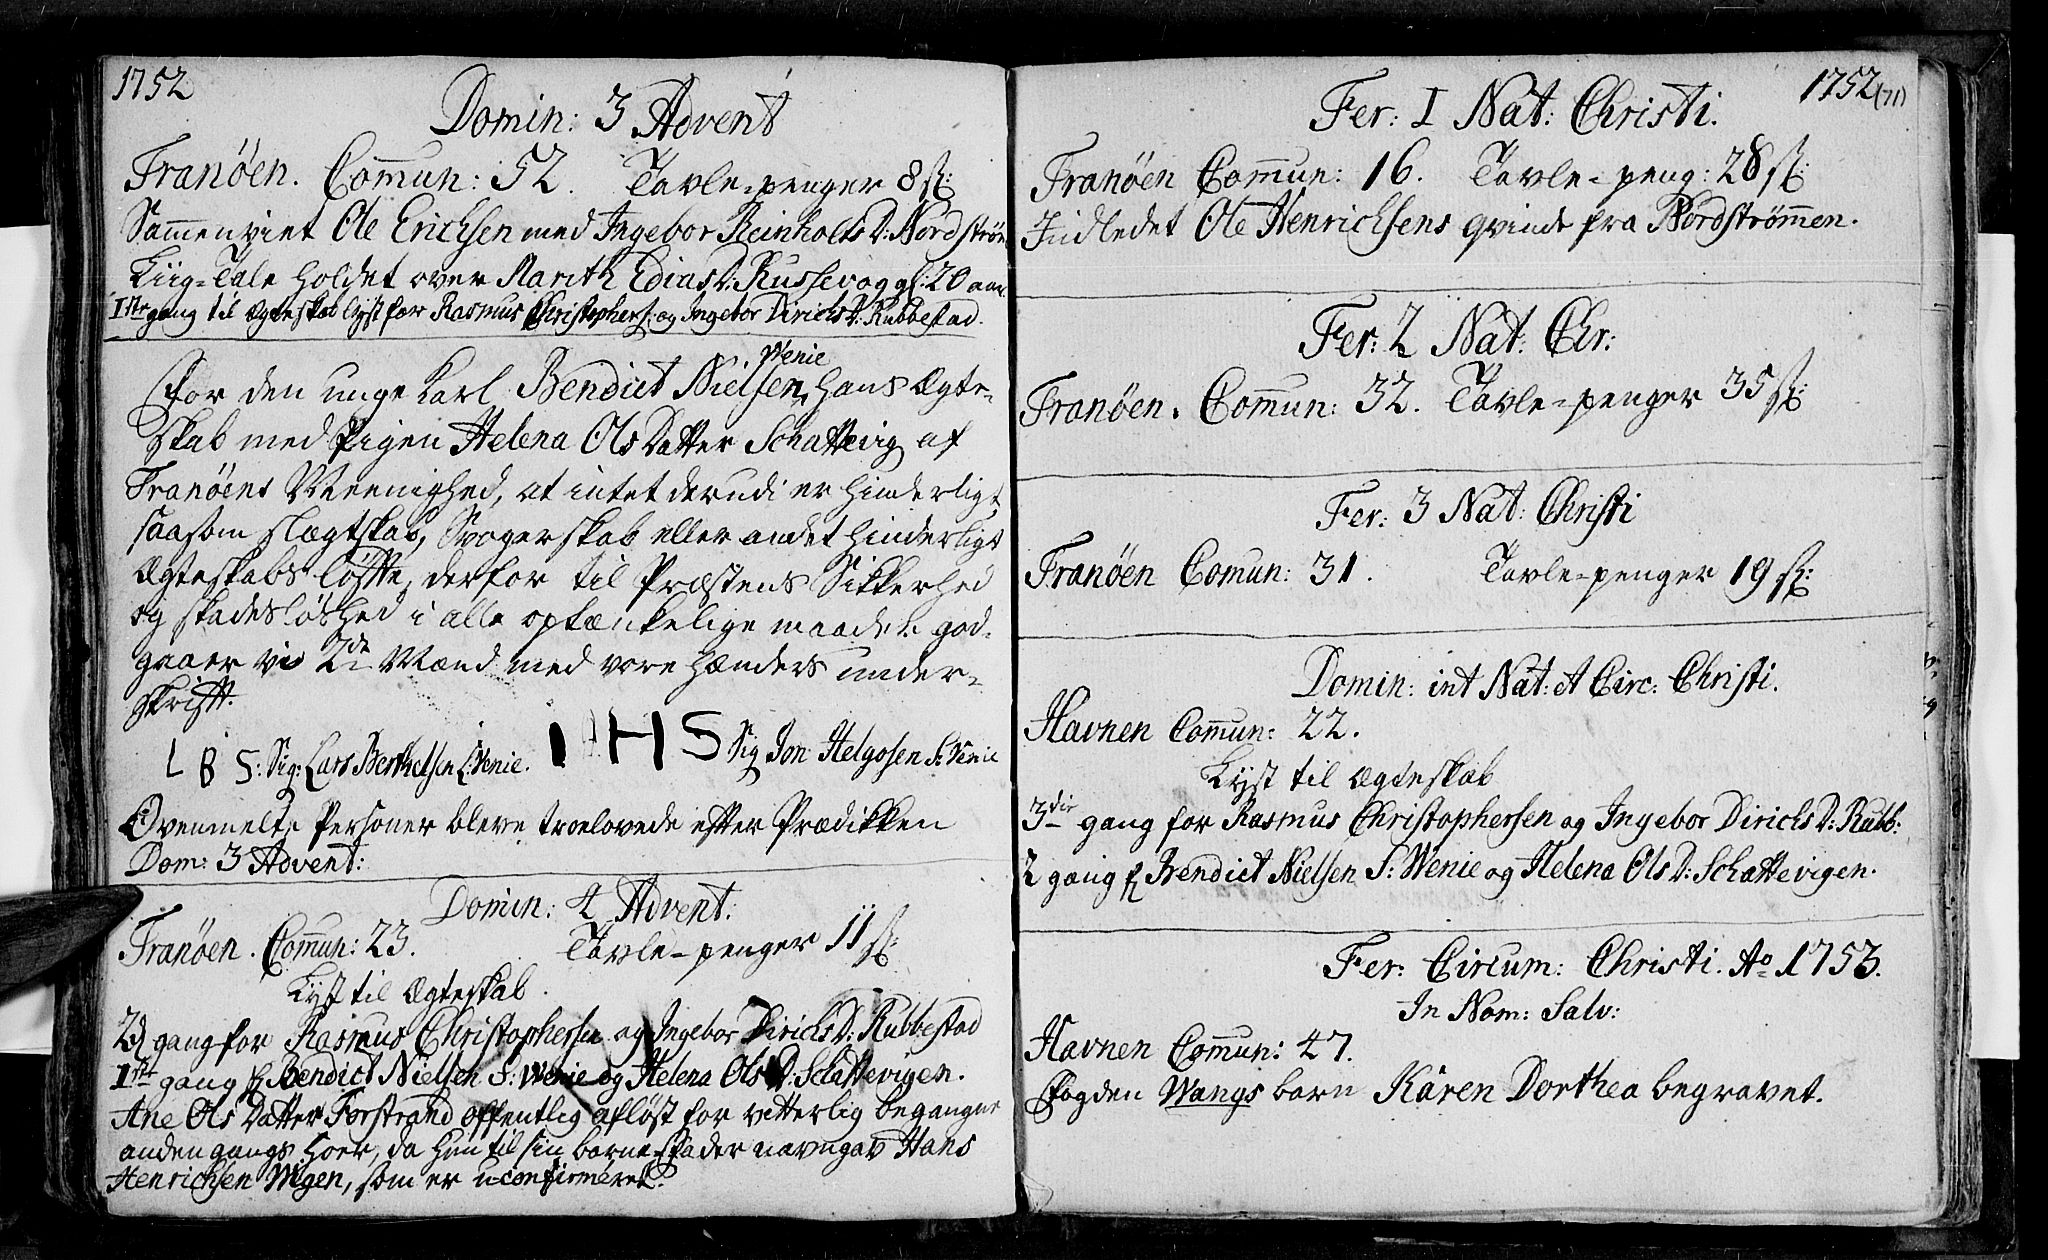 1752
Domin: 3 Advent
Tranöen. Com̄un: 52. Tavle-penger 8 sk:
Sammenviet Ole Erichsen med Ingebor Reinholts D: Nordström
Liig-Tale holdet over Marith Edias D: Russevog gl: 20 aar.
1ste gang til Ægteskab lyst for Rasmus Christophers: og Ingebor Dirichs D: Rubbestad.
Wenie
For den unge Karl Bendict Nielsen, hans Ægte-
skab med Pigen Helena Ols Datter Schattevig af
Tranöens Meenighed, at intet derudi er hinderligt
saasom slægtskab, Svogerskab eller andet hinderligt
Ægteskabs löfte, derfor til Præstens Sikkerhed
og skadeslöshed i alle optænkelige maader god-
gaaer vi 2de Mænd med vore hænders under-
skrifft.
L B S: Sig: Lars Berthelsen S: Wenie. I H S Sig Jon Helgosen S: Wenie
Ovenmelte Personer bleve troelovede efter Prædikken
Dom: 3 Advent:
Domin: 4 Advent:
Tranöen. Com̄un: 23. Tavle-penger 11 sk:
Lyst til Ægteskab.
2d gang for Rasmus Christophersen og Ingebor Dirichs D: Rubbestad
1ste gang f Bendict Nielsen S: Wenie og Helena Ols D: Schattevigen.
Ane Ols Datter Forstrand offentlig aflöst for vitterlig begangne
anden gangs hoer, da hun til sin barne-Fader navngav Hans
Henrichsen Vigen, som er uconfirmeret.
1752 (71)
Fer: I Nat: Christi.
Tranöen Com̄un: 16. Tavle-peng: 28 sk:
Indledet Ole Henrichsens qvinde fra Nordströmmen.
Fer: 2 Nat: Chr:
Tranöen. Com̄un: 32. Tavle-penger 35 sk:
Fer: 3 Nat: Christi
Tranöen Comun: 31. Tavle-penger 19 sk:
Domin: int Nat: et Circ: Christi.
Havnen Com̄un: 22.
Lyst til Ægteskab
3die gang for Rasmus Christophersen og Ingebor Dirichs D: Rubb:
2 gang f Bendict Nielsen S: Wenie og Helena Ols D: Schattevigen.
Fer: Circum: Christi. Ao 1753.
In Nom: Salv:
Havnen Com̄un: 47.
Fogden Wangs barn Karen Dorthea begravet.